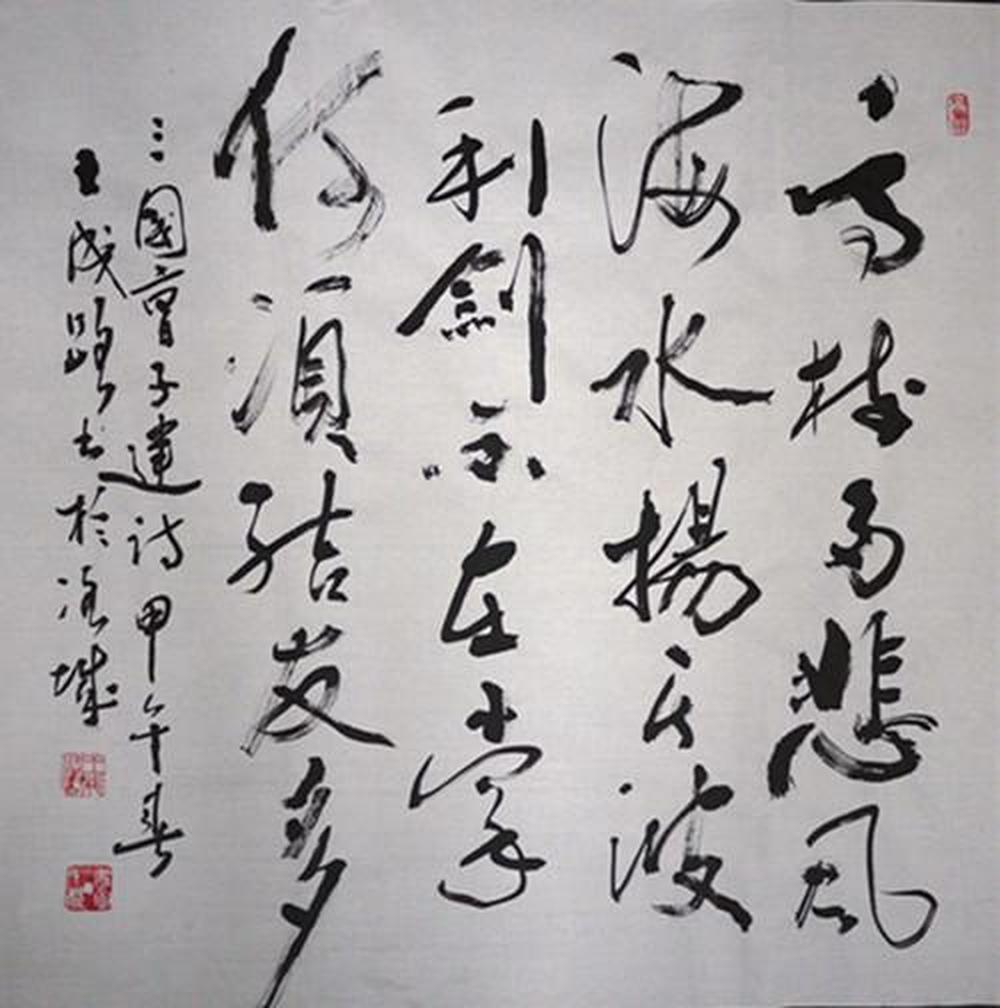 高樹多悲風
海水揚其波
利劍不在掌
何須結友多
三國曹子建詩甲午春
王成路书於城